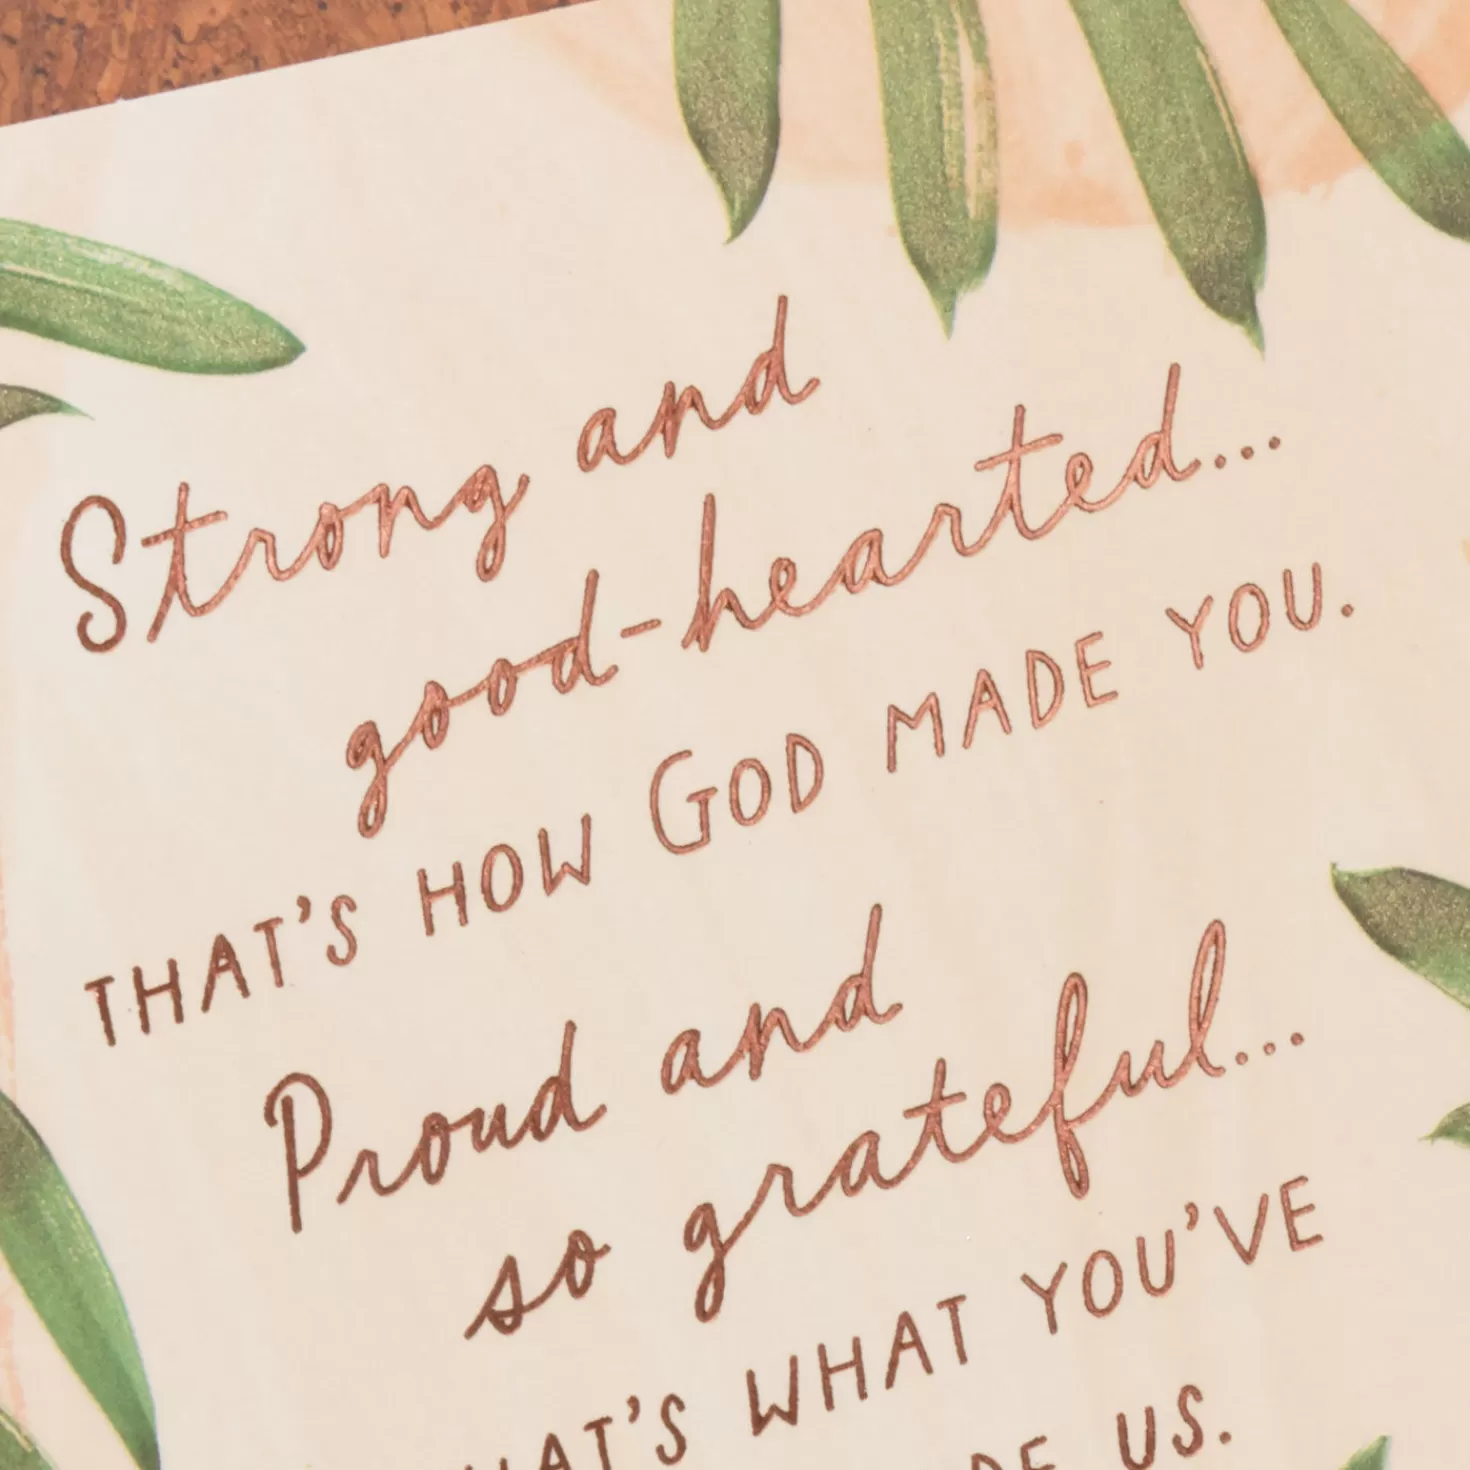 Strong and
good-hearted...
THAT'S HOW GOD MADE YOU.
Proud and
so grateful...
WHAT YOU'VE
US.